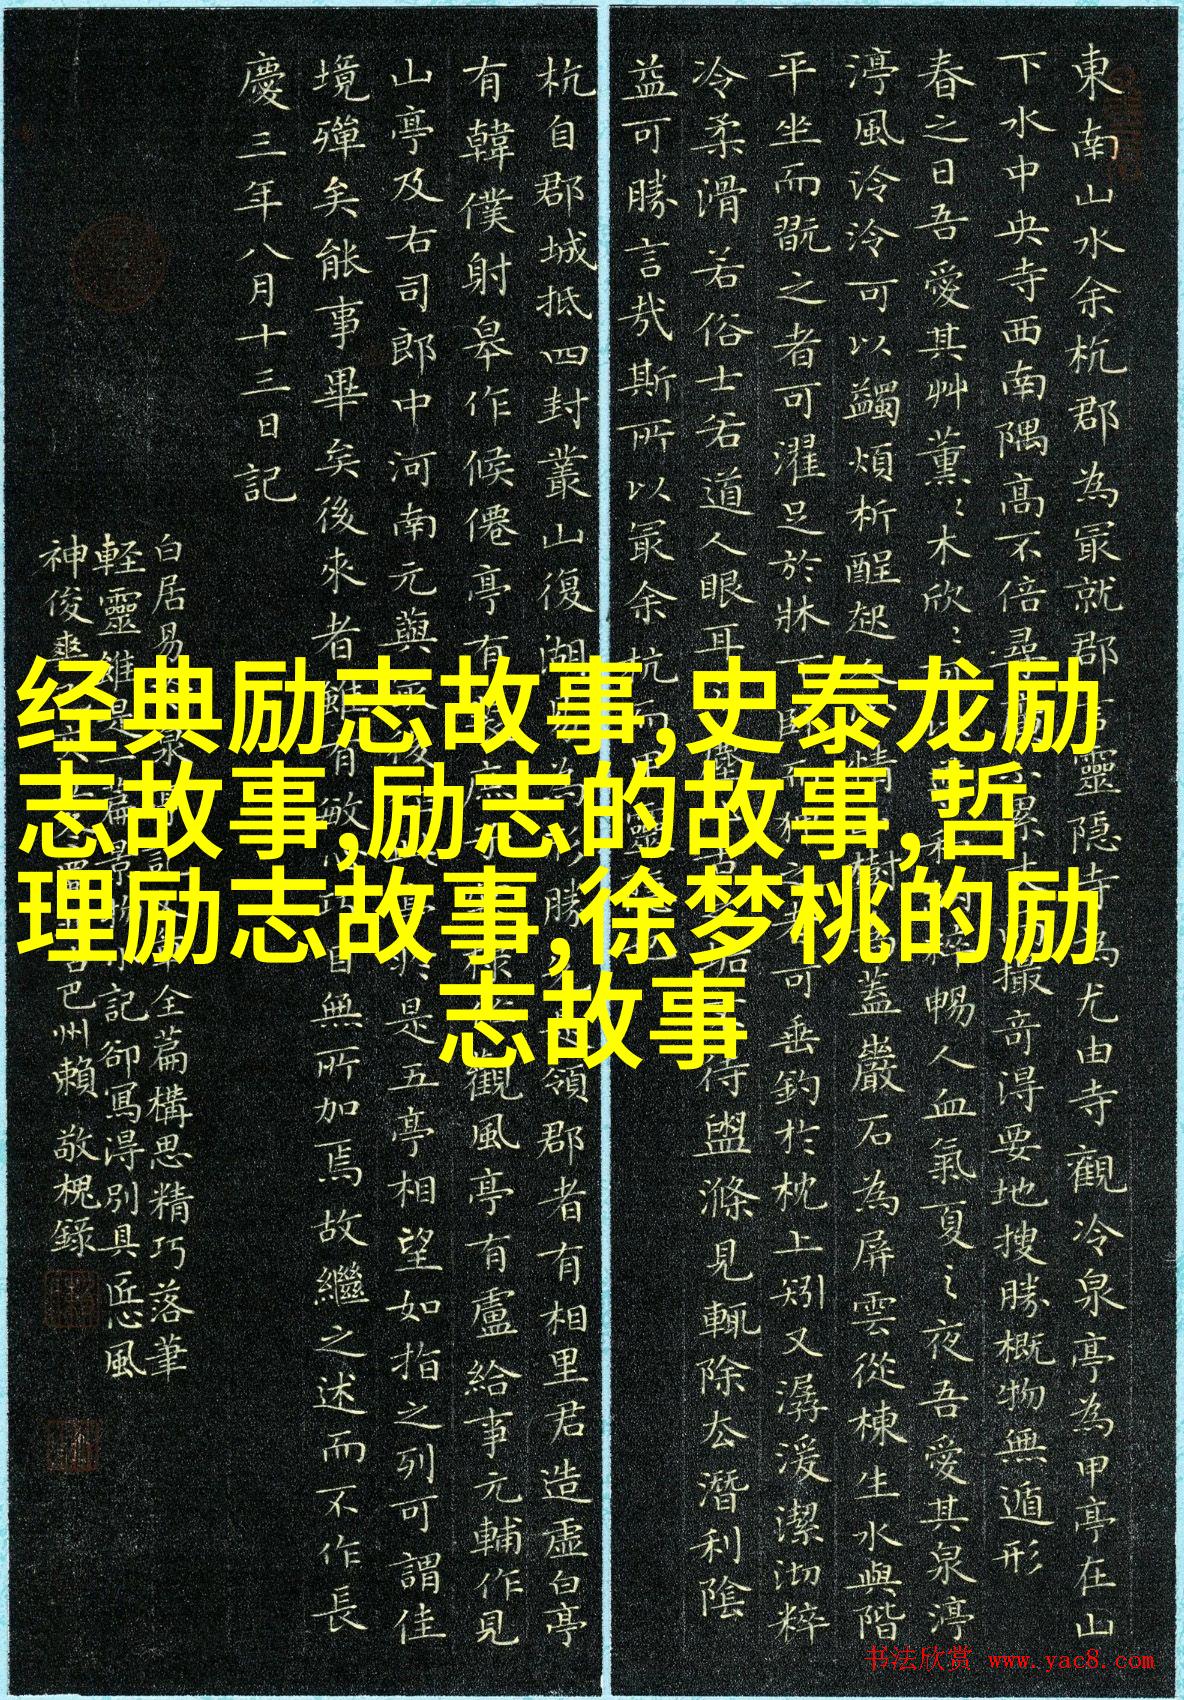 经典励志故事,史泰龙励
志故事,励志的故事,哲
理励志故事,徐梦桃的励
志故事
東南山水余杭郡為冣就郡言靈隐寺為尤由寺觀冷泉亭為甲亭在山
下水中央寺西南隅高不倍尋累撮竒淂要地搜勝概物無遁形
春之日吾愛其艸薰〻木欣〻可暢人血氣夏〻夜吾愛其泉渟
渟風泠泠可以蠲煩析酲起情樹蓋巖石為屏雲從棟生水與階
平坐而翫之者可濯足於牀下卧之可垂釣於枕上矧又潺湲潔沏粹
冷柔滑若俗士若道人眼耳舌待盥滌見輒除去潛利陰
益可勝言哉斯所以冣余杭而甲靈
杭自郡城抵四封叢山復湖為勝領郡者有相里君造虛白亭
有韓僕射臯作候僊亭有庶觀風亭有盧給事元輔作見
山亭及右司郎中河南元藇後於是五亭相望如指之列可謂佳
境殫矣能事畢矣後来者雖有敏目無所加焉故繼之述而不作長
慶三年八月十三日記
白居易全篇構思精巧落筆
軽靈雖是一篇景記卻寫得別具匠心風
神俊爽巴州賴敬槐録
书法欣赏 www.yac8.com